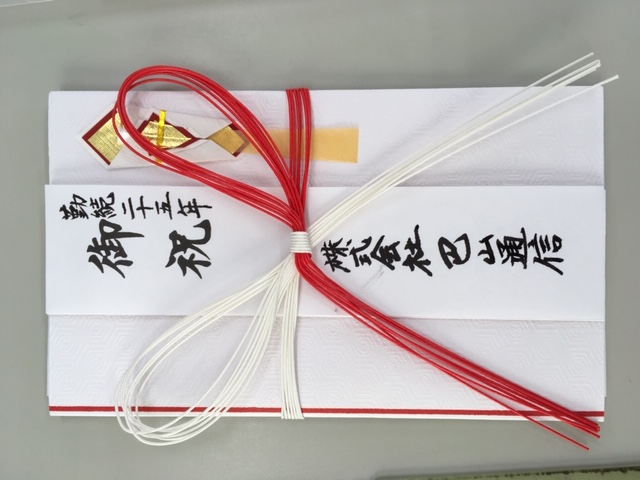 勤続二十五年
御祝
株式会社巴山通信